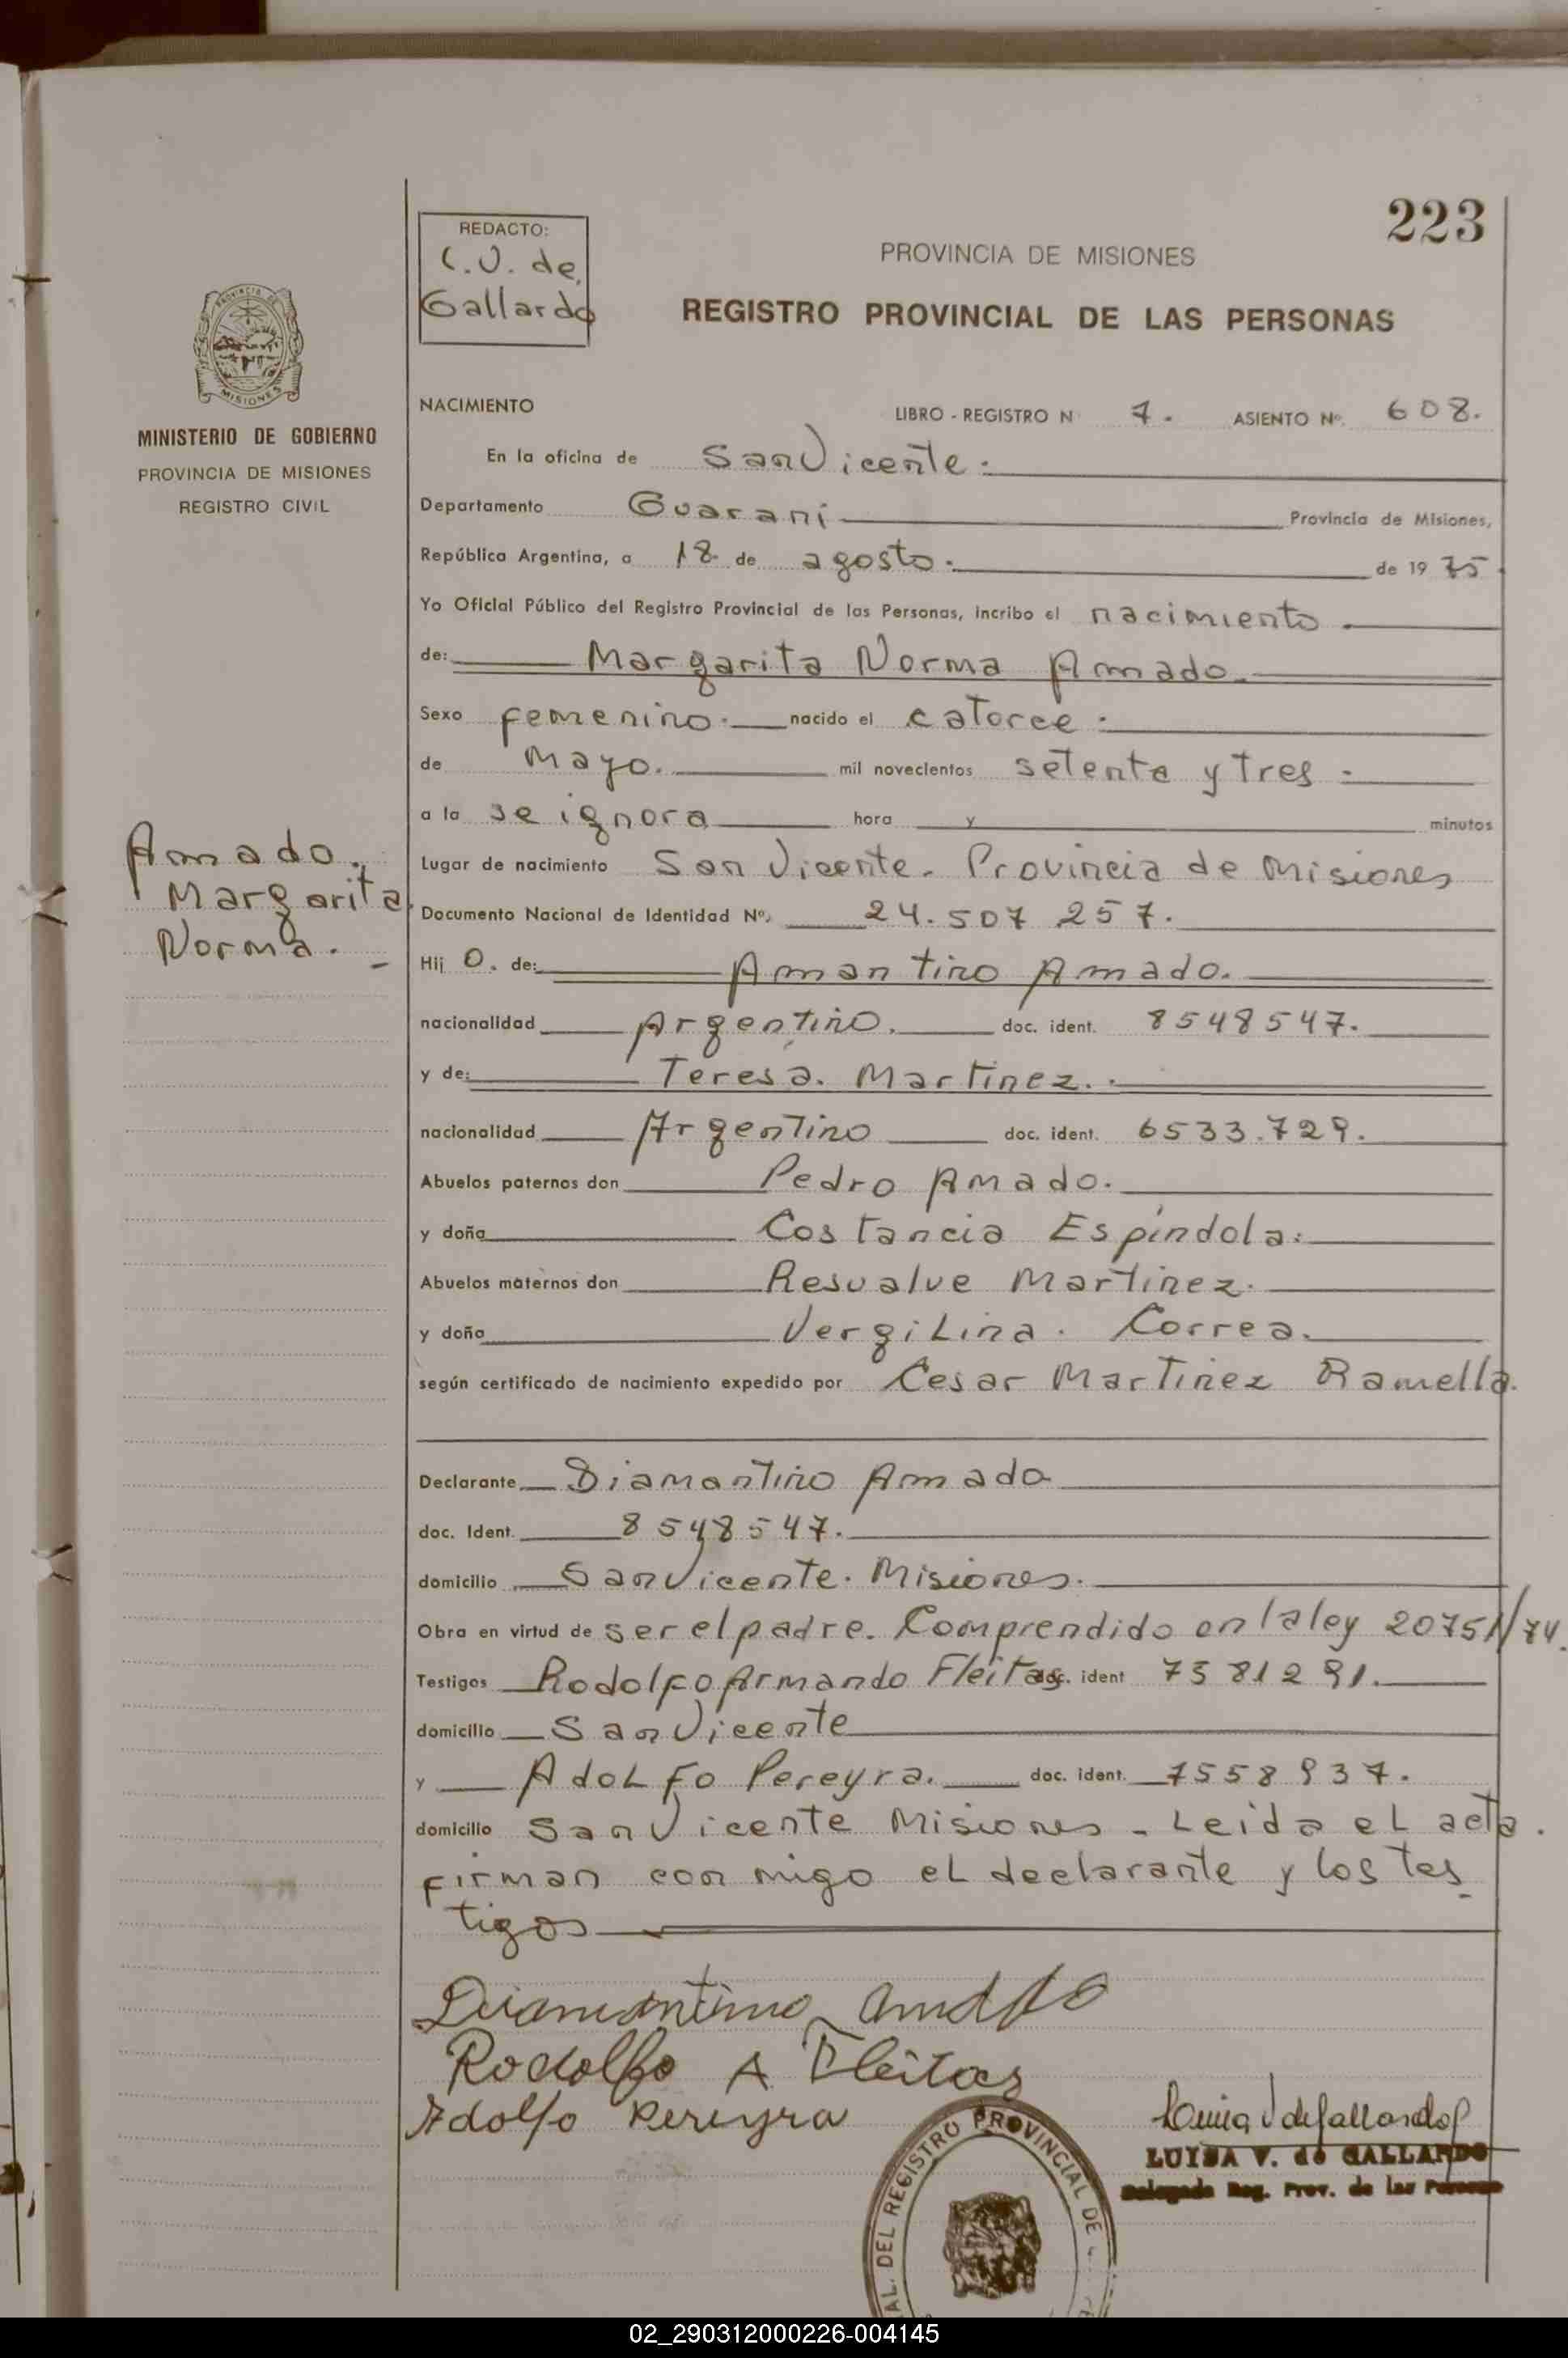 223
REDACTO:
L.V. de
Gallardo
PROVINCIA DE MISIONES
REGISTRO PROVINCIAL DE LAS PERSONAS
PROVINCIA DE
MISIONES
MINISTERIO DE GOBIERNO
PROVINCIA DE MISIONES
REGISTRO CIVIL
Amado.
Margarita
Norma. -
NACIMIENTO LIBRO - REGISTRO N 7. ASIENTO Nº. 608.
En la oficina de San Vicente.
Departamento Guarani Provincia de Misiones,
República Argentina, a 18 de agosto. de 19 75
Yo Oficial Público del Registro Provincial de las Personas, incribo el nacimiento.
de: Margarita Norma Amado.
Sexo femenino. nacido el catorce.
de Mayo. mil novecientos setenta y tres.
a la se ignora hora y minutos
Lugar de nacimiento San Vicente. Provincia de Misiones
Documento Nacional de Identidad Nº. 24.507 257.
Hij o. de: Amantino Amado.
nacionalidad Argentino. doc. ident. 8548547.
y de: Teresa. Martinez.
nacionalidad Argentino doc. ident. 6533.729.
Abuelos paternos don Pedro Amado.
y doña Costancia Espíndola.
Abuelos maternos don Resualve Martinez.
y doña Vergilina. Correa.
según certificado de nacimiento expedido por Cesar Martinez Ramella.
Declarante Diamantino Amado
doc. Ident. 8548547.
domicilio San Vicente. Misiones.
Obra en virtud de ser el padre. Comprendido en la ley 20751/74.
Testigos Rodolfo Armando Fleitas doc. ident 7381291.
domicilio San Vicente
y Adolfo Pereyra. doc. ident. 7558937.
domicilio San Vicente Misiones - Leida el acta.
firman con migo el declarante y los tes
tigos
Diamantino Amado
Rodolfo A Fleitas
Adolfo Pereyra
Luisa V de Gallardo
LUISA V. de GALLARDO
Delegada Reg. Prov. de las Personas
AL. DEL REGISTRO PROVINCIAL DE
02_290312000226-004145